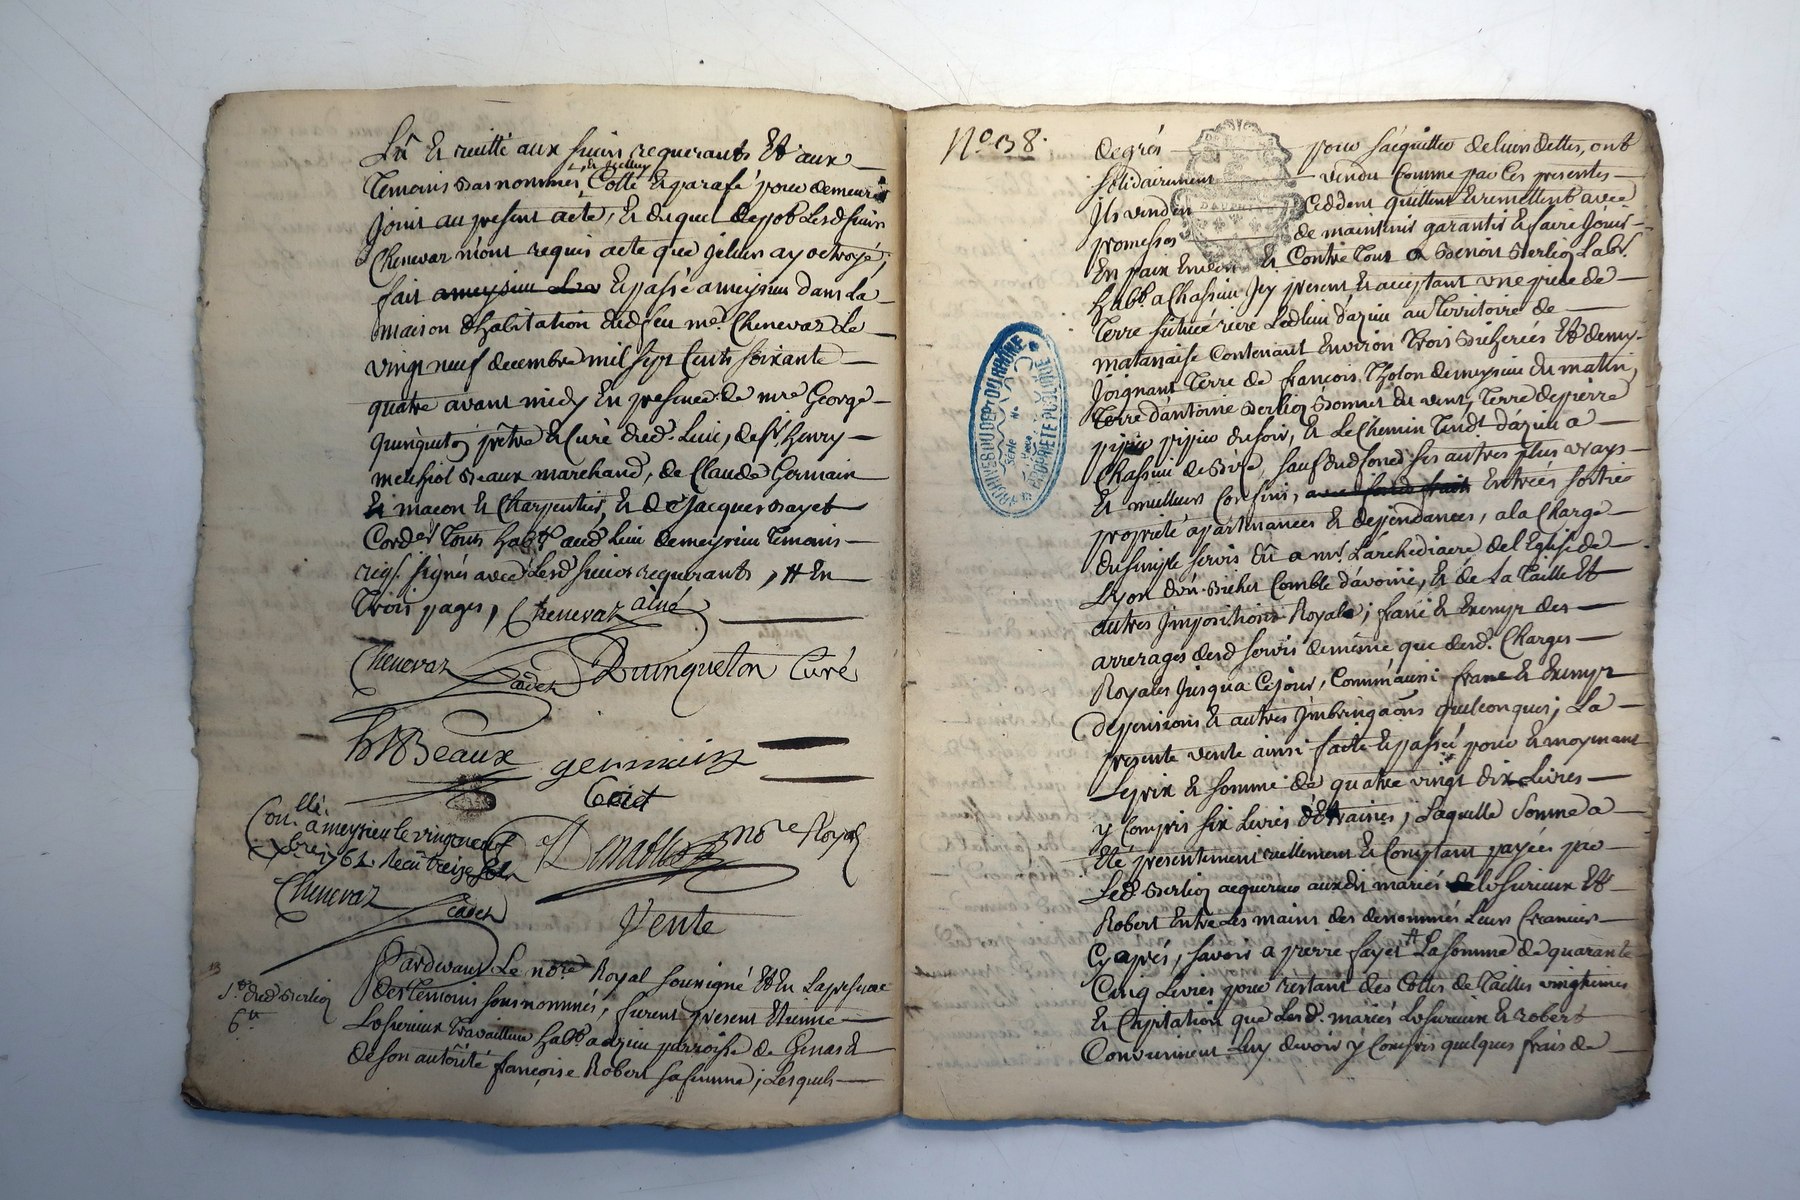 Lû et
aux
requerants et aux
temoins Cotté et parafé pour
Joint au present acte, et duquel
Chenevaz m'ont requis acte que ay octroyé,
fait et passé a meysieu dans la
maison d'habitation dud feu me. Chenevaz le
vingt neuf decembre mil sept cents soixante
quatre avant midy en presence de mre George
quinqueton prêtre et Curé dud. Lieu, de sr. henry
melchiol Beaux marchand, de Claude Germain
maçon et Charpentier, et de Jacques
Corder tous habts aud lieu de meysieu temoins
signés avec requerants, en
trois pages, Chenevaz ainé
Chenevaz Cadet Quinqueton Curé
Beaux germain
Con.llé
a meysieu le vingt neuf
xbre 176 Recû treize sols
Royal
Chenevaz
Cadet
Vente
Pardevant Le nore Royal soussigné et en la presence
des temoins sousnommés, furent present Etienne
travailleur habt. a azieu parroisse de Genas et
de son autôrité françoise Robert sa femme; Lesquels
No 138.
de grés pour s'acquitter de leurs dettes, ont
solidairement vendu Comme par les presentes
Ils vendent Ceddent quittent et remettent avec
promesses de maintenir garantir et faire Jouir
En paix et Contre tous a Benoit Berlioz Labr.
habt. a Chassieu Icy present et acceptant une piece de
terre située d'azieu au territoire de
matanaise Contenant Environ trois Bicherées et demy
Joignant terre de françois tholon de meysieu du matin,
terre d'antoine Berlioz du vent, terre de pierre
du soir, et Le Chemin d'azieu a
Chassieu de Bize, sauf ses autres plus vrays
et meilleurs Confins, Entrées sorties
proprieté apartenances et deppendances, a la Charge
du simple servis dû a mr. L'archediacre de l'Eglise de
Lyon Comble d'avoine, et de la taille et
autres Impositions Royales; franc et Exempt des
arrerages desd servis de même que desd. Charges
Royales Jusqu'a Ce jour, Comm'aussi franc et Exempt
de pensions et autres quelconques; La
presente vente ainsi faite et passée pour et moyenant
Le prix et somme de quatre vingt dix Livres
y Compris six Livres d'Etraines; Laquelle Somme a
Eté presentement reellement et Comptant payée par
Led Berlioz acquereur auxdits mariés et
Robert Entre les mains des denommés Leurs Creanciers
Cy aprés, savoir a pierre fayet La somme de quarante
Cinq Livres pour restant des Cottes de tailles vingtiemes
et Capitation que Lesd. mariés et Robert
Conviennent Luy devoir y Compris quelques frais de